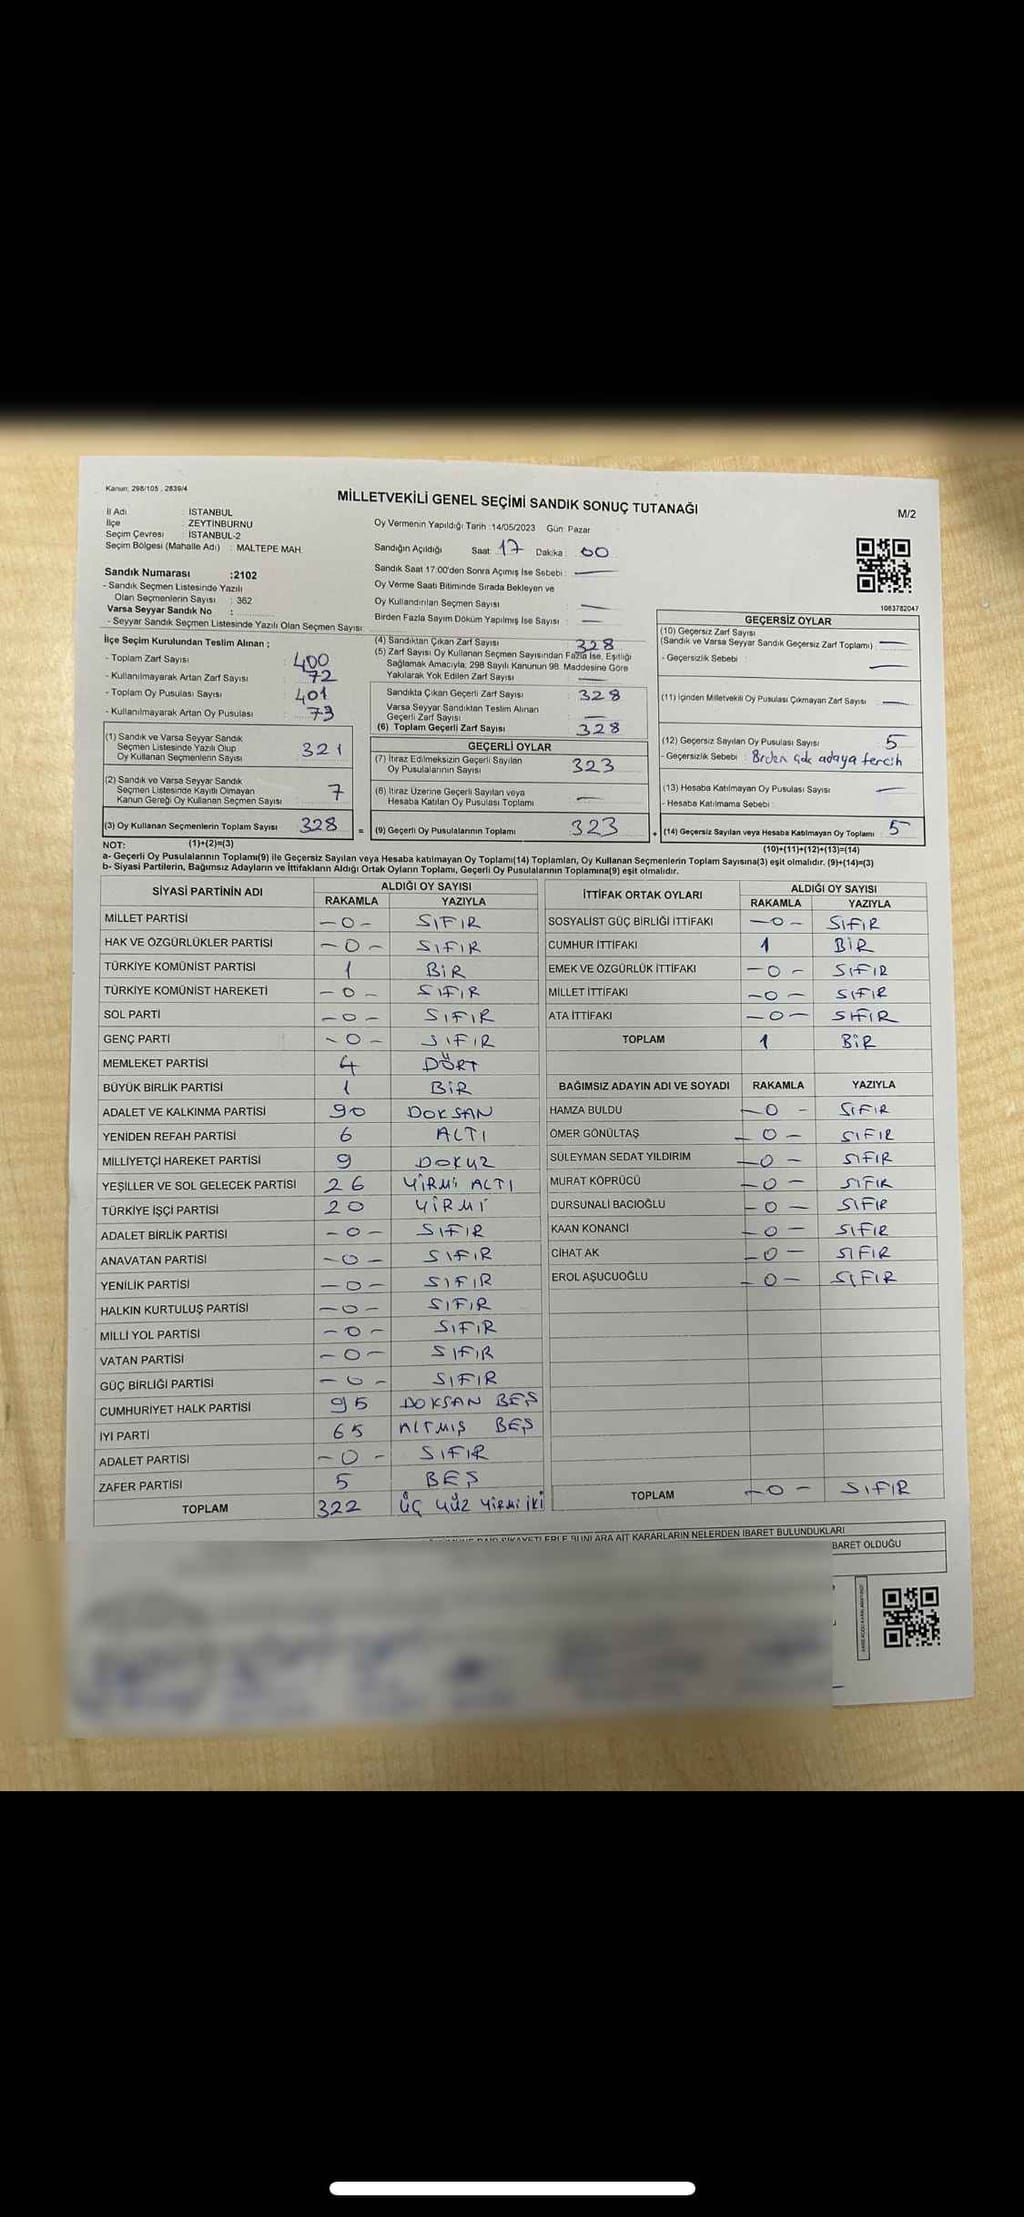 Kanun: 298/105 , 2839/4
MİLLETVEKİLİ GENEL SEÇİMİ SANDIK SONUÇ TUTANAĞI
M/2
İl Adı : İSTANBUL
İlçe : ZEYTİNBURNU
Seçim Çevresi : İSTANBUL-2
Seçim Bölgesi (Mahalle Adı) : MALTEPE MAH.
Oy Vermenin Yapıldığı Tarih :14/05/2023 Gün: Pazar
Sandığın Açıldığı Saat: 17 Dakika: 00
Sandık Saat 17:00'den Sonra Açımış İse Sebebi : —
Oy Verme Saati Bitiminde Sırada Bekleyen ve
Oy Kullandırılan Seçmen Sayısı : —
Birden Fazla Sayım Döküm Yapılmış İse Sayısı : —
1083782047
Sandık Numarası :2102
- Sandık Seçmen Listesinde Yazılı
Olan Seçmenlerin Sayısı : 362
Varsa Seyyar Sandık No :
- Seyyar Sandık Seçmen Listesinde Yazılı Olan Seçmen Sayısı:
İlçe Seçim Kurulundan Teslim Alınan ;
- Toplam Zarf Sayısı : 400
- Kullanılmayarak Artan Zarf Sayısı : 72
- Toplam Oy Pusulası Sayısı : 401
- Kullanılmayarak Artan Oy Pusulası : 73
(1) Sandık ve Varsa Seyyar Sandık
Seçmen Listesinde Yazılı Olup
Oy Kullanan Seçmenlerin Sayısı 321
(2) Sandık ve Varsa Seyyar Sandık
Seçmen Listesinde Kayıtlı Olmayan
Kanun Gereği Oy Kullanan Seçmen Sayısı 7
(3) Oy Kullanan Seçmenlerin Toplam Sayısı 328 =
(4) Sandıktan Çıkan Zarf Sayısı : 328
(5) Zarf Sayısı Oy Kullanan Seçmen Sayısından Fazla İse, Eşitliği
Sağlamak Amacıyla, 298 Sayılı Kanunun 98. Maddesine Göre
Yakılarak Yok Edilen Zarf Sayısı : —
Sandıkta Çıkan Geçerli Zarf Sayısı : 328
Varsa Seyyar Sandıktan Teslim Alınan
Geçerli Zarf Sayısı : —
(6) Toplam Geçerli Zarf Sayısı : 328
GEÇERLİ OYLAR
(7) İtiraz Edilmeksizin Geçerli Sayılan
Oy Pusulalarının Sayısı 323
(8) İtiraz Üzerine Geçerli Sayılan veya
Hesaba Katılan Oy Pusulası Toplamı —
(9) Geçerli Oy Pusulalarının Toplamı 323 +
GEÇERSİZ OYLAR
(10) Geçersiz Zarf Sayısı
(Sandık ve Varsa Seyyar Sandık Geçersiz Zarf Toplamı) —
- Geçersizlik Sebebi : —
(11) İçinden Milletvekili Oy Pusulası Çıkmayan Zarf Sayısı —
(12) Geçersiz Sayılan Oy Pusulası Sayısı 5
- Geçersizlik Sebebi : Birden çok adaya tercih
(13) Hesaba Katılmayan Oy Pusulası Sayısı —
- Hesaba Katılmama Sebebi :
(14) Geçersiz Sayılan veya Hesaba Katılmayan Oy Toplamı 5
NOT: (1)+(2)=(3) (10)+(11)+(12)+(13)=(14)
a- Geçerli Oy Pusulalarının Toplamı(9) ile Geçersiz Sayılan veya Hesaba katılmayan Oy Toplamı(14) Toplamları, Oy Kullanan Seçmenlerin Toplam Sayısına(3) eşit olmalıdır. (9)+(14)=(3)
b- Siyasi Partilerin, Bağımsız Adayların ve İttifakların Aldığı Ortak Oyların Toplamı, Geçerli Oy Pusulalarının Toplamına(9) eşit olmalıdır.
SİYASİ PARTİNİN ADI ALDIĞI OY SAYISI
RAKAMLA YAZIYLA
MİLLET PARTİSİ -0- SIFIR
HAK VE ÖZGÜRLÜKLER PARTİSİ -0- SIFIR
TÜRKİYE KOMÜNİST PARTİSİ 1 BİR
TÜRKİYE KOMÜNİST HAREKETİ -0- SIFIR
SOL PARTİ -0- SIFIR
GENÇ PARTİ -0- SIFIR
MEMLEKET PARTİSİ 4 DÖRT
BÜYÜK BİRLİK PARTİSİ 1 BİR
ADALET VE KALKINMA PARTİSİ 90 DOKSAN
YENİDEN REFAH PARTİSİ 6 ALTI
MİLLİYETÇİ HAREKET PARTİSİ 9 DOKUZ
YEŞİLLER VE SOL GELECEK PARTİSİ 26 YİRMİ ALTI
TÜRKİYE İŞÇİ PARTİSİ 20 YİRMİ
ADALET BİRLİK PARTİSİ -0- SIFIR
ANAVATAN PARTİSİ -0- SIFIR
YENİLİK PARTİSİ -0- SIFIR
HALKIN KURTULUŞ PARTİSİ -0- SIFIR
MİLLİ YOL PARTİSİ -0- SIFIR
VATAN PARTİSİ -0- SIFIR
GÜÇ BİRLİĞİ PARTİSİ -0- SIFIR
CUMHURİYET HALK PARTİSİ 95 DOKSAN BEŞ
İYİ PARTİ 65 ALTMIŞ BEŞ
ADALET PARTİSİ -0- SIFIR
ZAFER PARTİSİ 5 BEŞ
TOPLAM 322 ÜÇ YÜZ YİRMİ İKİ
İTTİFAK ORTAK OYLARI ALDIĞI OY SAYISI
RAKAMLA YAZIYLA
SOSYALİST GÜÇ BİRLİĞİ İTTİFAKI -0- SIFIR
CUMHUR İTTİFAKI 1 BİR
EMEK VE ÖZGÜRLÜK İTTİFAKI -0- SIFIR
MİLLET İTTİFAKI -0- SIFIR
ATA İTTİFAKI -0- SIFIR
TOPLAM 1 BİR
BAĞIMSIZ ADAYIN ADI VE SOYADI RAKAMLA YAZIYLA
HAMZA BULDU -0- SIFIR
ÖMER GÖNÜLTAŞ -0- SIFIR
SÜLEYMAN SEDAT YILDIRIM -0- SIFIR
MURAT KÖPRÜCÜ -0- SIFIR
DURSUNALİ BACIOĞLU -0- SIFIR
KAAN KONANCİ -0- SIFIR
CİHAT AK -0- SIFIR
EROL AŞUCUOĞLU -0- SIFIR
TOPLAM -0- SIFIR
ŞİKAYETLERLE BUNLARA AİT KARARLARIN NELERDEN İBARET BULUNDUKLARI
İBARET OLDUĞU